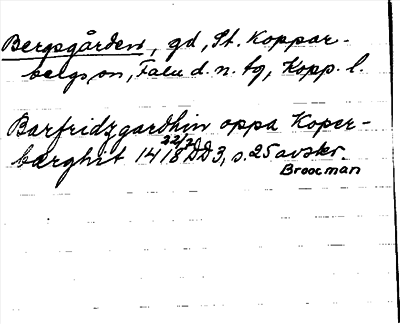 Bergsgården, gd, St. Koppar-
bergs sn, Falu d. n. tg, Kopp. l.
Barfridzgardhin oppa Koper-
bærghit 1418 22/2 DD 3, s. 25 avskr.
Broocman